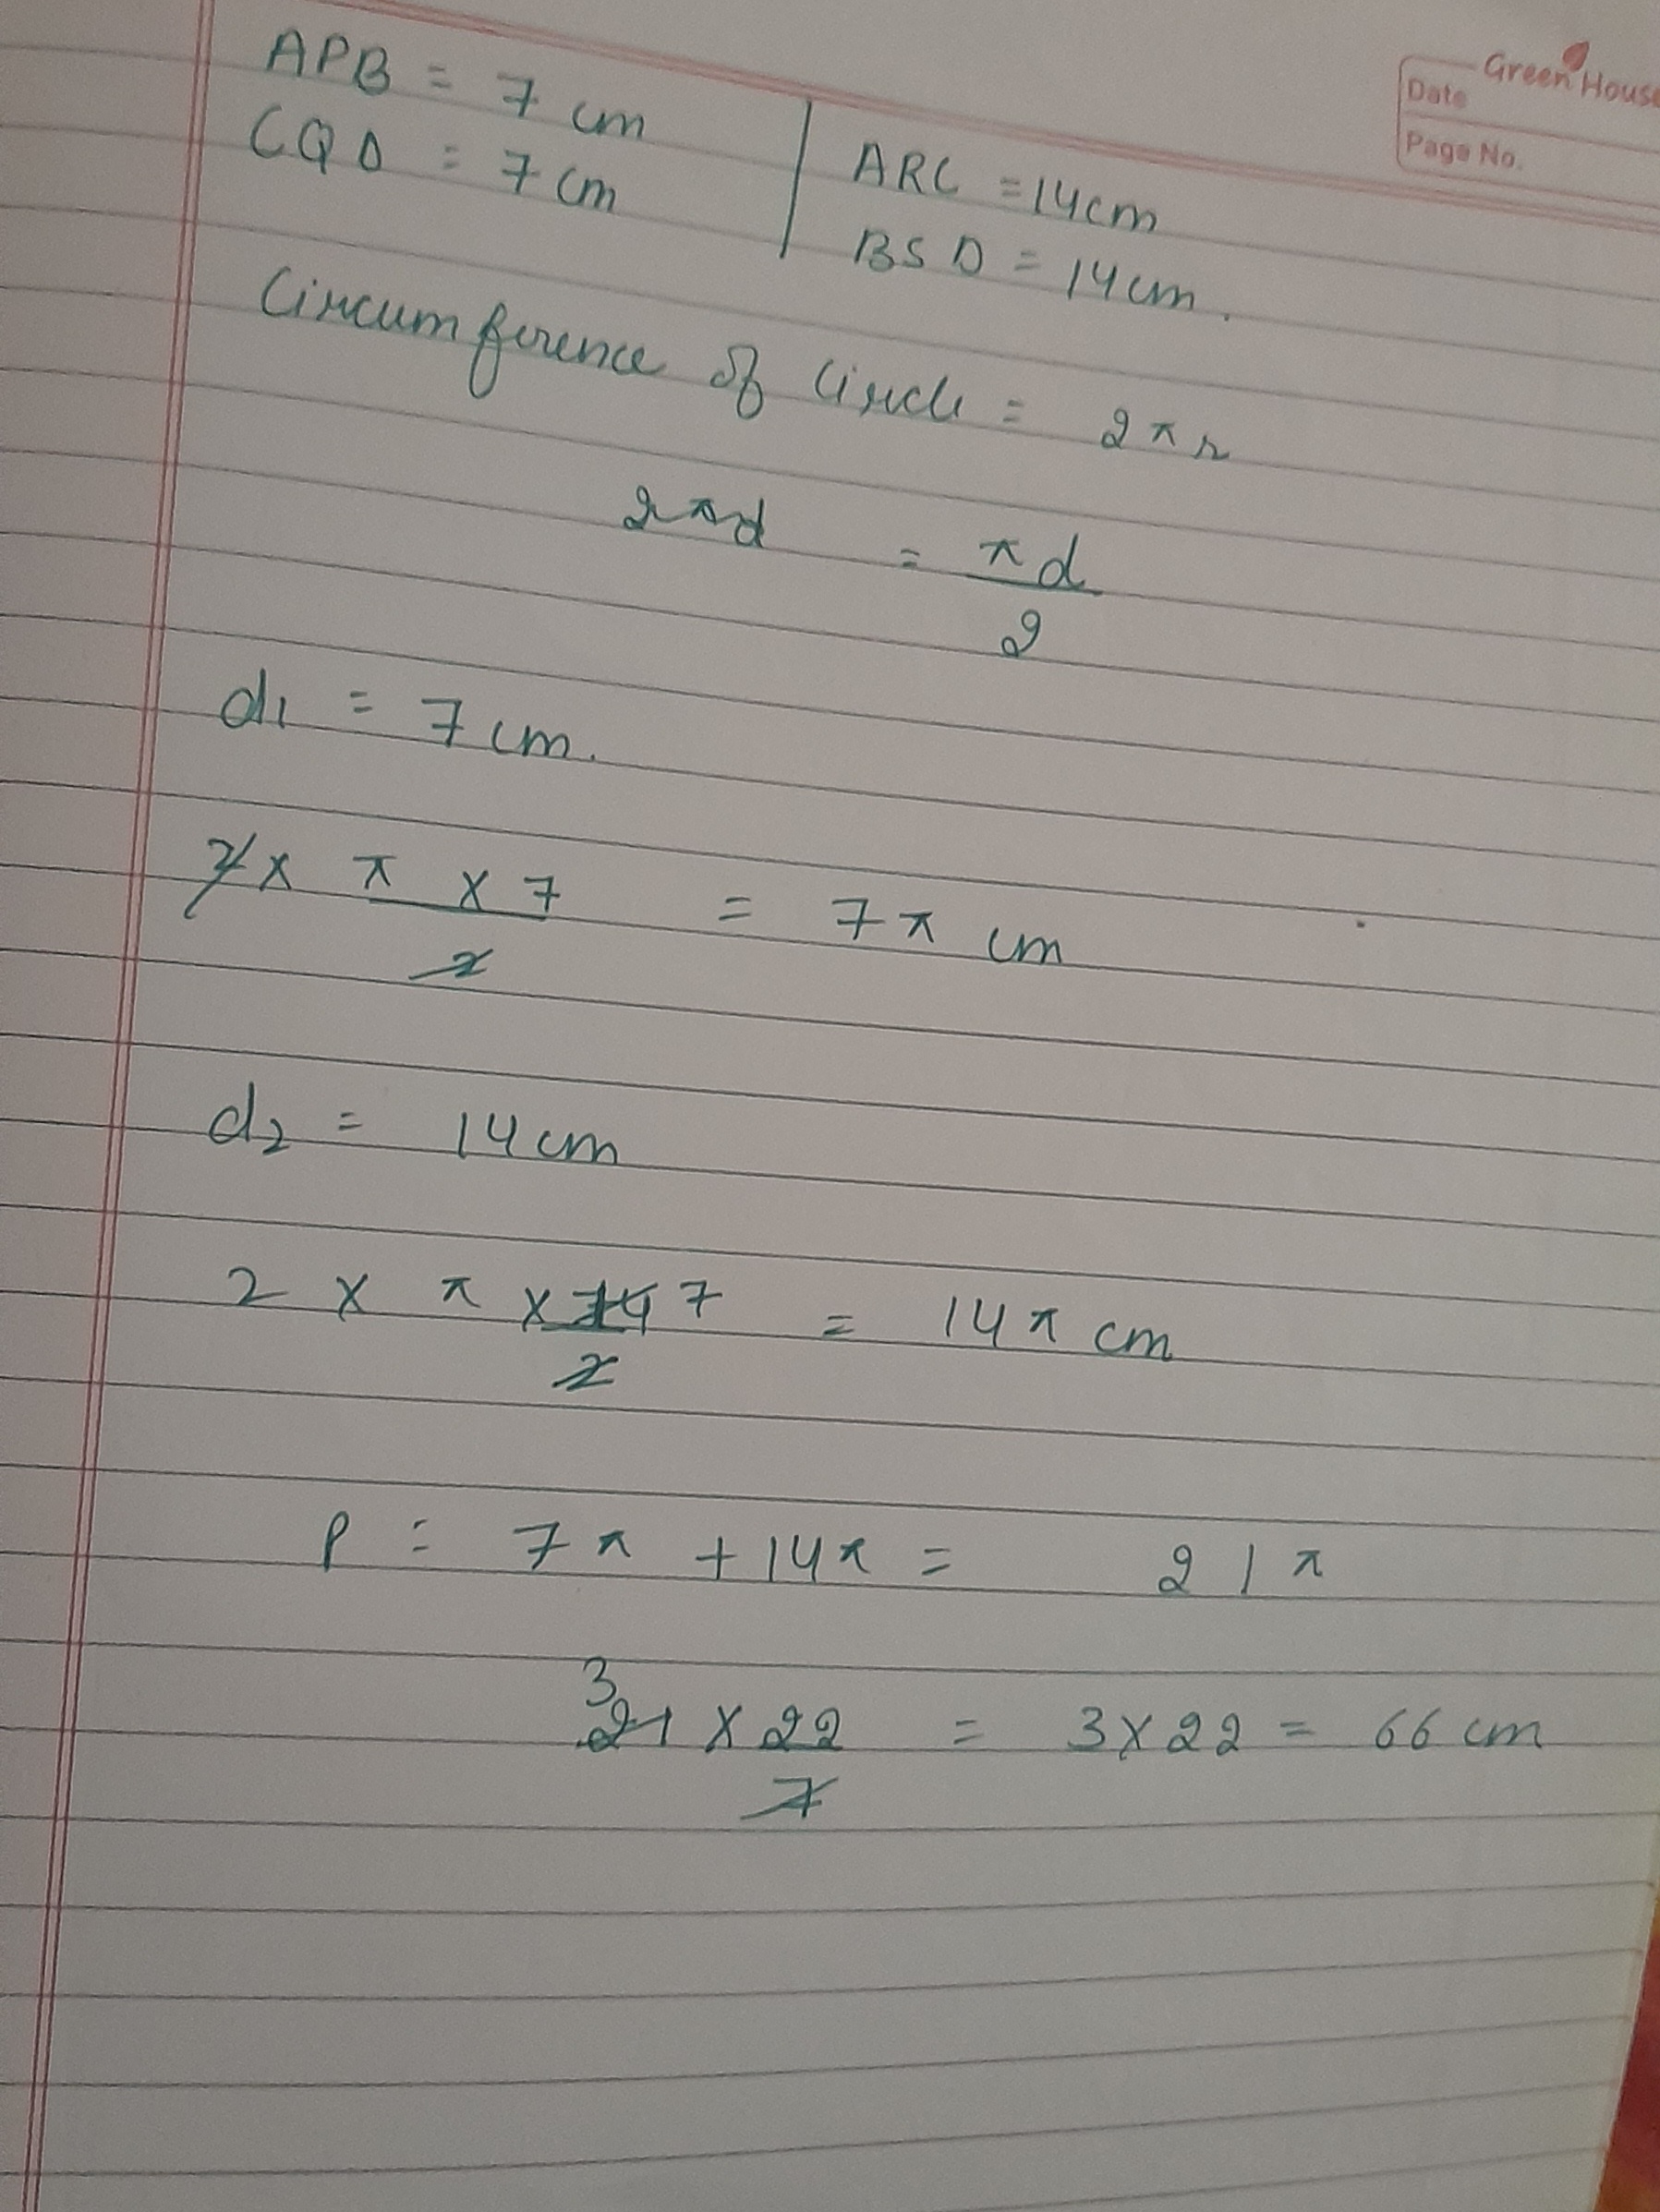 Green House
Date
Page No.
APB = 7 cm
CQD = 7 cm
ARC = 14 cm
BSD = 14 cm.
Circumference of Circle = 2πr
2πd = πd/2
d1 = 7 cm.
2 × π × 7/2 = 7π cm
d2 = 14 cm
2 × π × 14/2 7 = 14π cm
P = 7π + 14π = 21π
3
21 × 22/7 = 3 × 22 = 66 cm